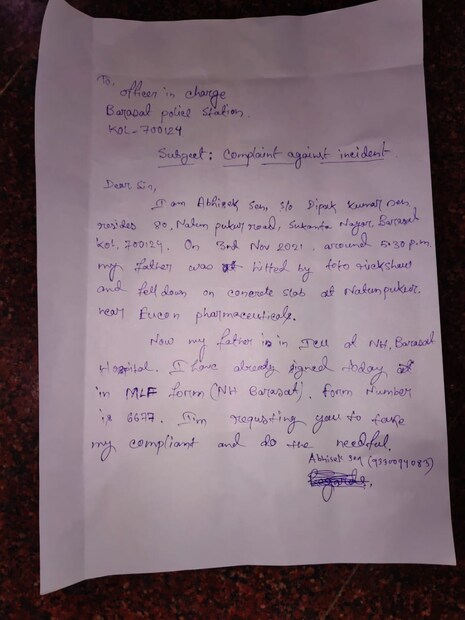 To,
Officer in charge
Barasat police station.
KOL-700124
Subject: Complaint against incident.
Dear Sir,
I am Abhisek Sen, S/o Dipak Kumar Sen
resides 80, Natun pukur road, Sukanta Nagar, Barasat
Kol, 700124. On 3rd Nov 2021 around 5:30 p.m.
my father was hitted by toto rickshaw
and fell down on concrete slab at Natunpukur.
near Eucon pharmaceuticals.
Now my father is in ICU at NH, Barasat
Hospital. I have already signed today
in MLF form (NH Barasat). Form Number
is 6677. I'm requsting you to take
my compliant and do the needful.
Abhisek Sen
Regards,